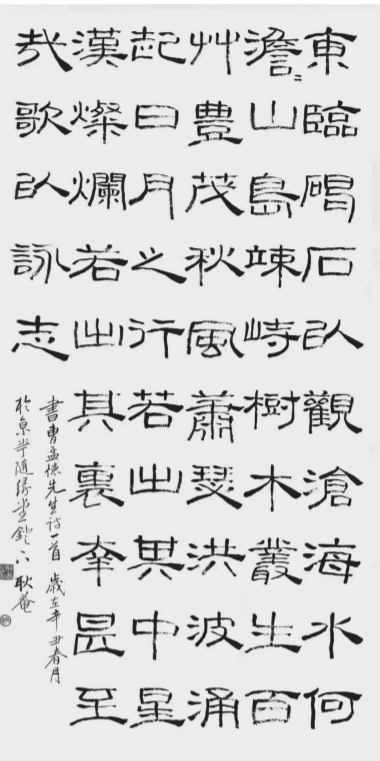 東臨碣石以觀滄海水何
澹〻山島竦峙樹木叢生百
艸豐茂秋風蕭瑟洪波涌
起日月之行若出其中星
漢燦爛若出其裏幸甚至
哉歌以詠志
書曹孟德先生詩一首 歲在辛丑春月
於京華隨緣堂鐙下 耿菴